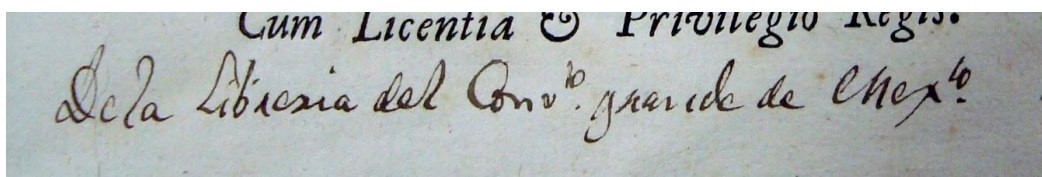 Cum Licentia & Privilegio Regis.
De la Libreria del Conv.to grande de Mex.co